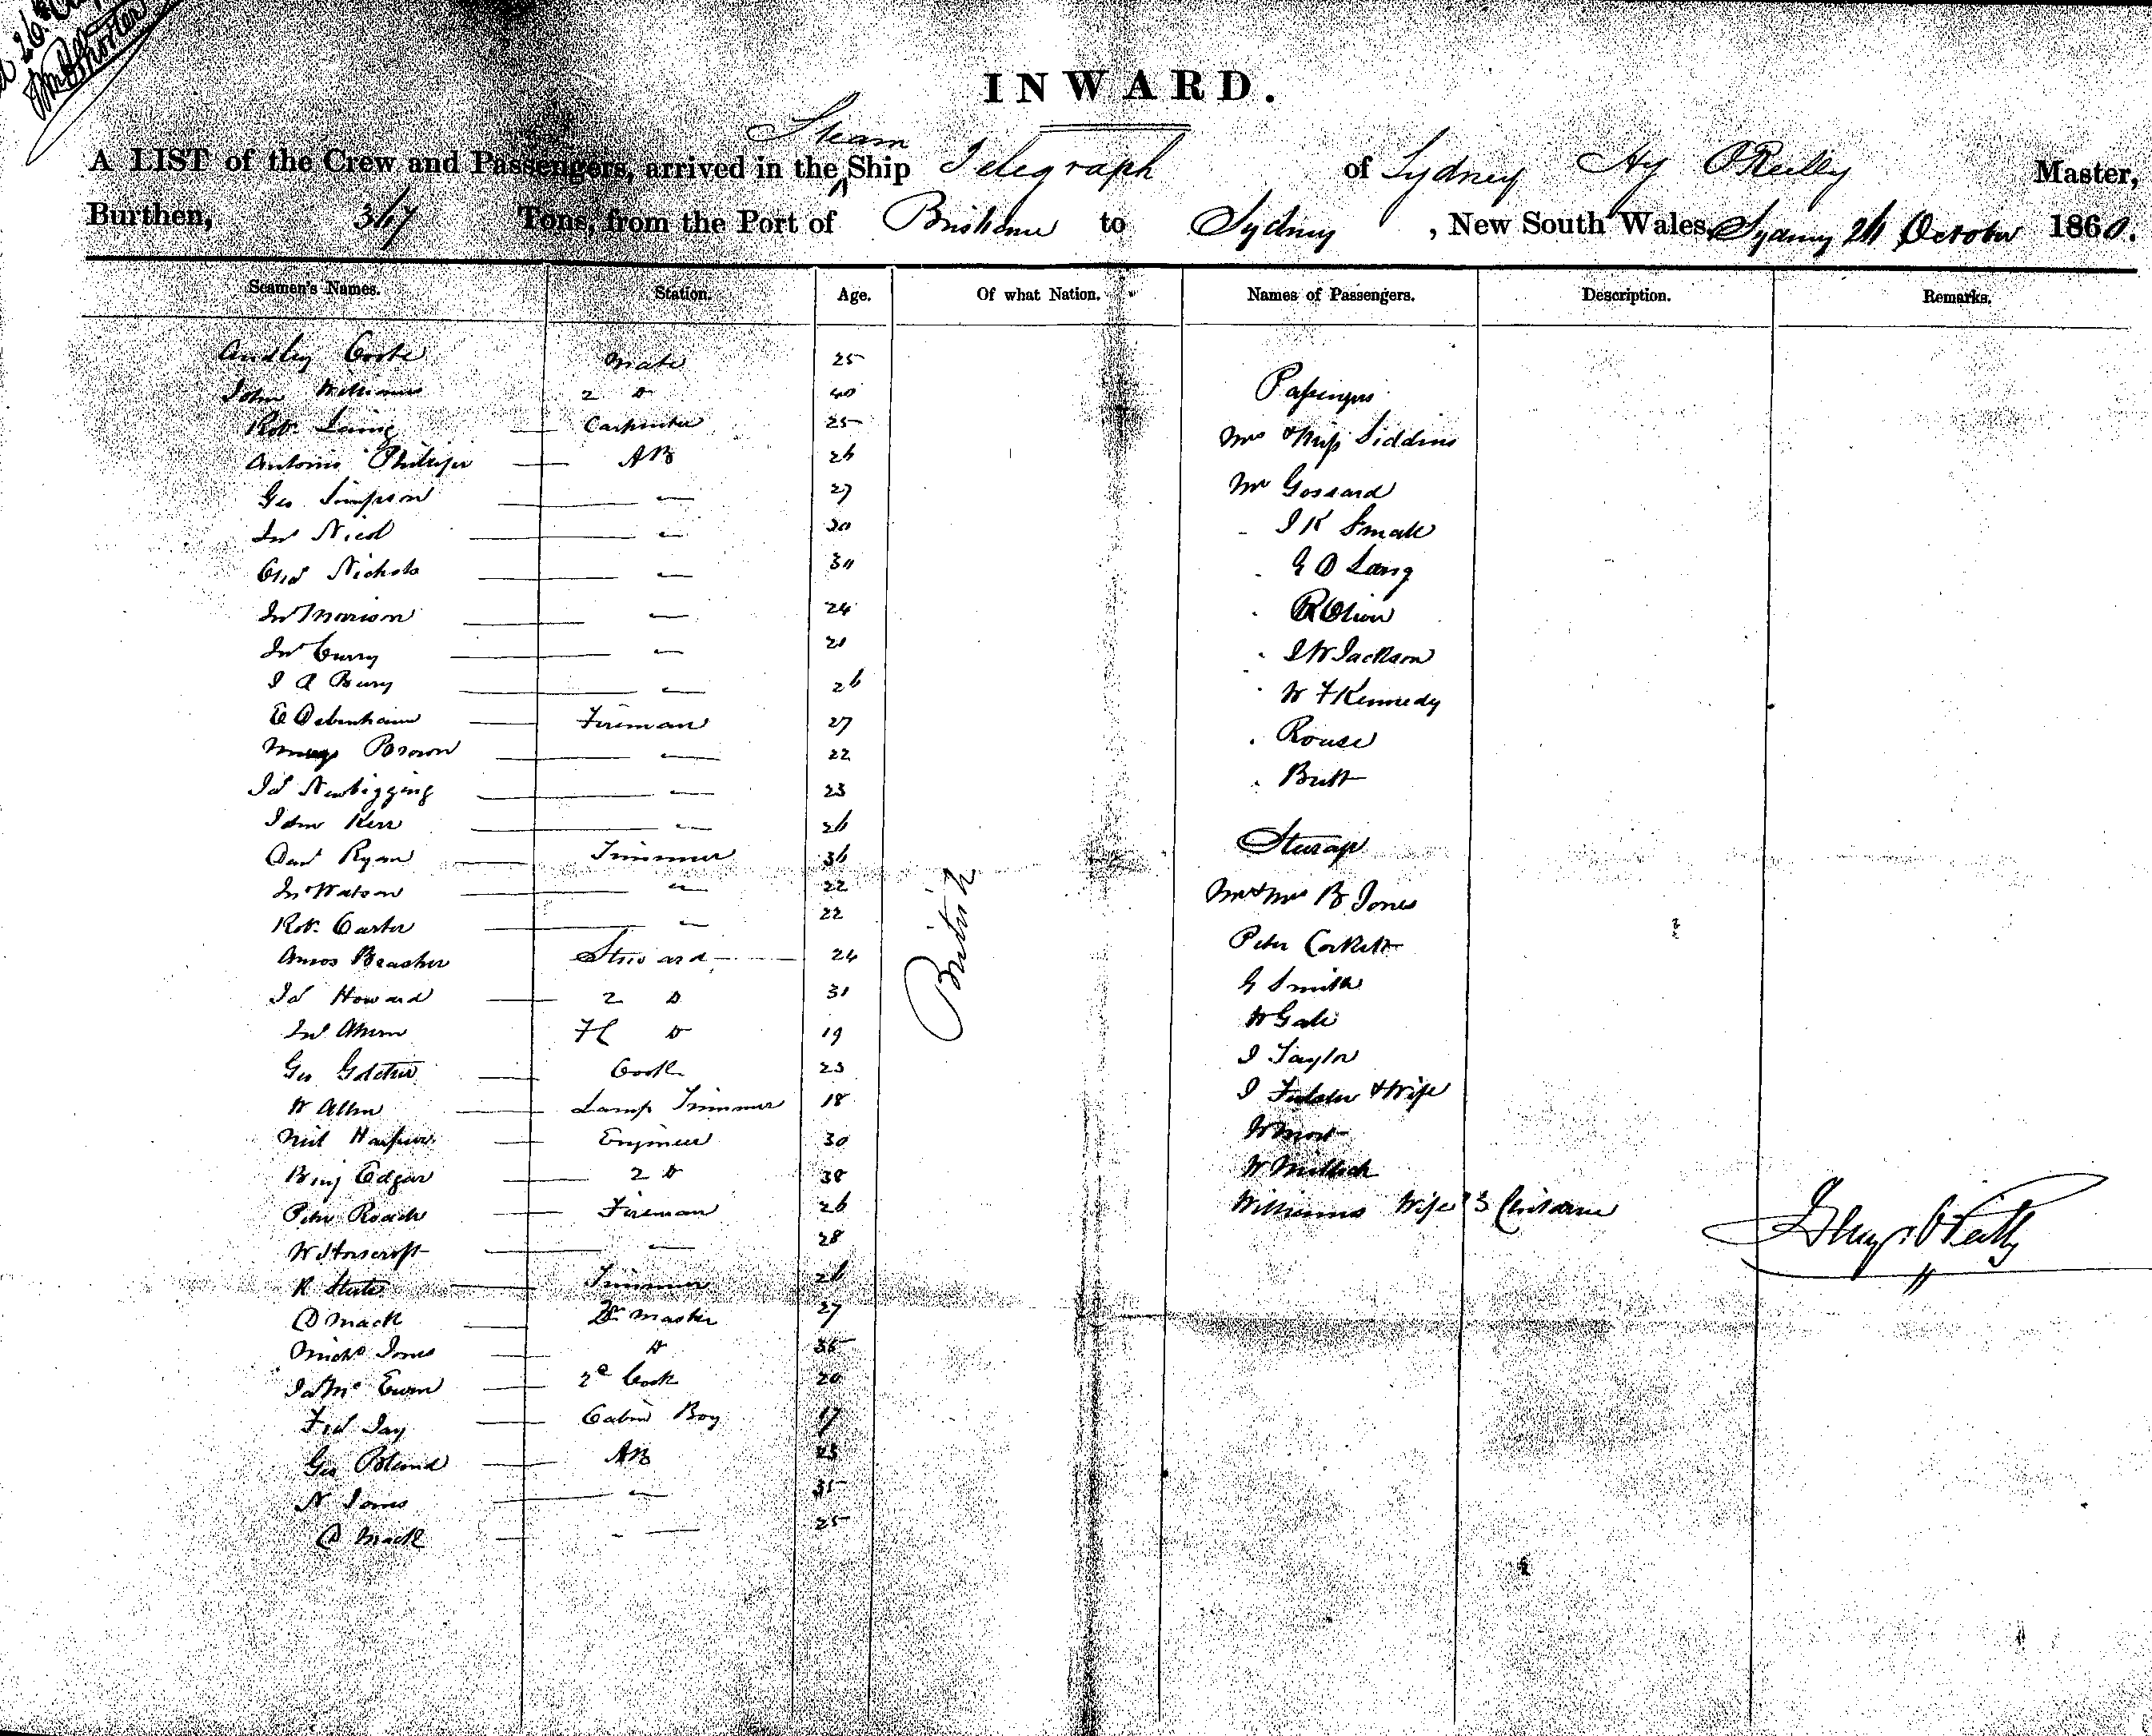 INWARD.
Steam
A LIST of the Crew and Passengers, arrived in the ^ Ship Telegraph of Sydney Hy O'Reilly Master,
Burthen, 367 Tons, from the Port of Brisbane to Sydney , New South Wales, Sydney 26 October 1860.
Seamen's Names. Station. Age. Of what Nation. Names of Passengers. Description. Remarks.
Audley Coote Mate 25
John Williams 2 Do 40
Robt Laing Carpenter 25
Antonio AB 26
Geo Simpson 27
Jno Nicol 30
Chas Nichols 30
Jno Morison 24
Jno Curry 21
J A Bury 26
E Debenham Fireman 27
Brown 22
Jas Newbigging 23
John Kerr 26
Danl Ryan Trimmer 36
Jno Watson 22
Robt Carter 22
Amos Brasher Steward 24
Jas Howard 2 Do 31
Jno Ahern Do 19
Geo Cook 23
W Allen Lamp Trimmer 18
Neil Engineer 30
Benj Edgar 2 Do 38
Peter Roach Fireman 26
W Horscroft 28
R Trimmer 26
D Mack Qr Master 27
Michl Jones Do 35
Jas Mc Ewen 2d Cook 20
Fred Jay Cabin Boy 17
Geo Bland AB 23
N Jones 35
D Mack 25
British
Passengers
Mrs & Miss Siddins
Mr Gossard
J K Small
G D Lang
R Oliver
J W Jackson
W F Kennedy
Rouse
Butt
Steerage
Mr & Mrs B Jones
Peter Corkett
G Smith
W Gale
J Taylor
J & Wife
W Mort
W
Williams Wife & 3 Children
Henry O'Reilly